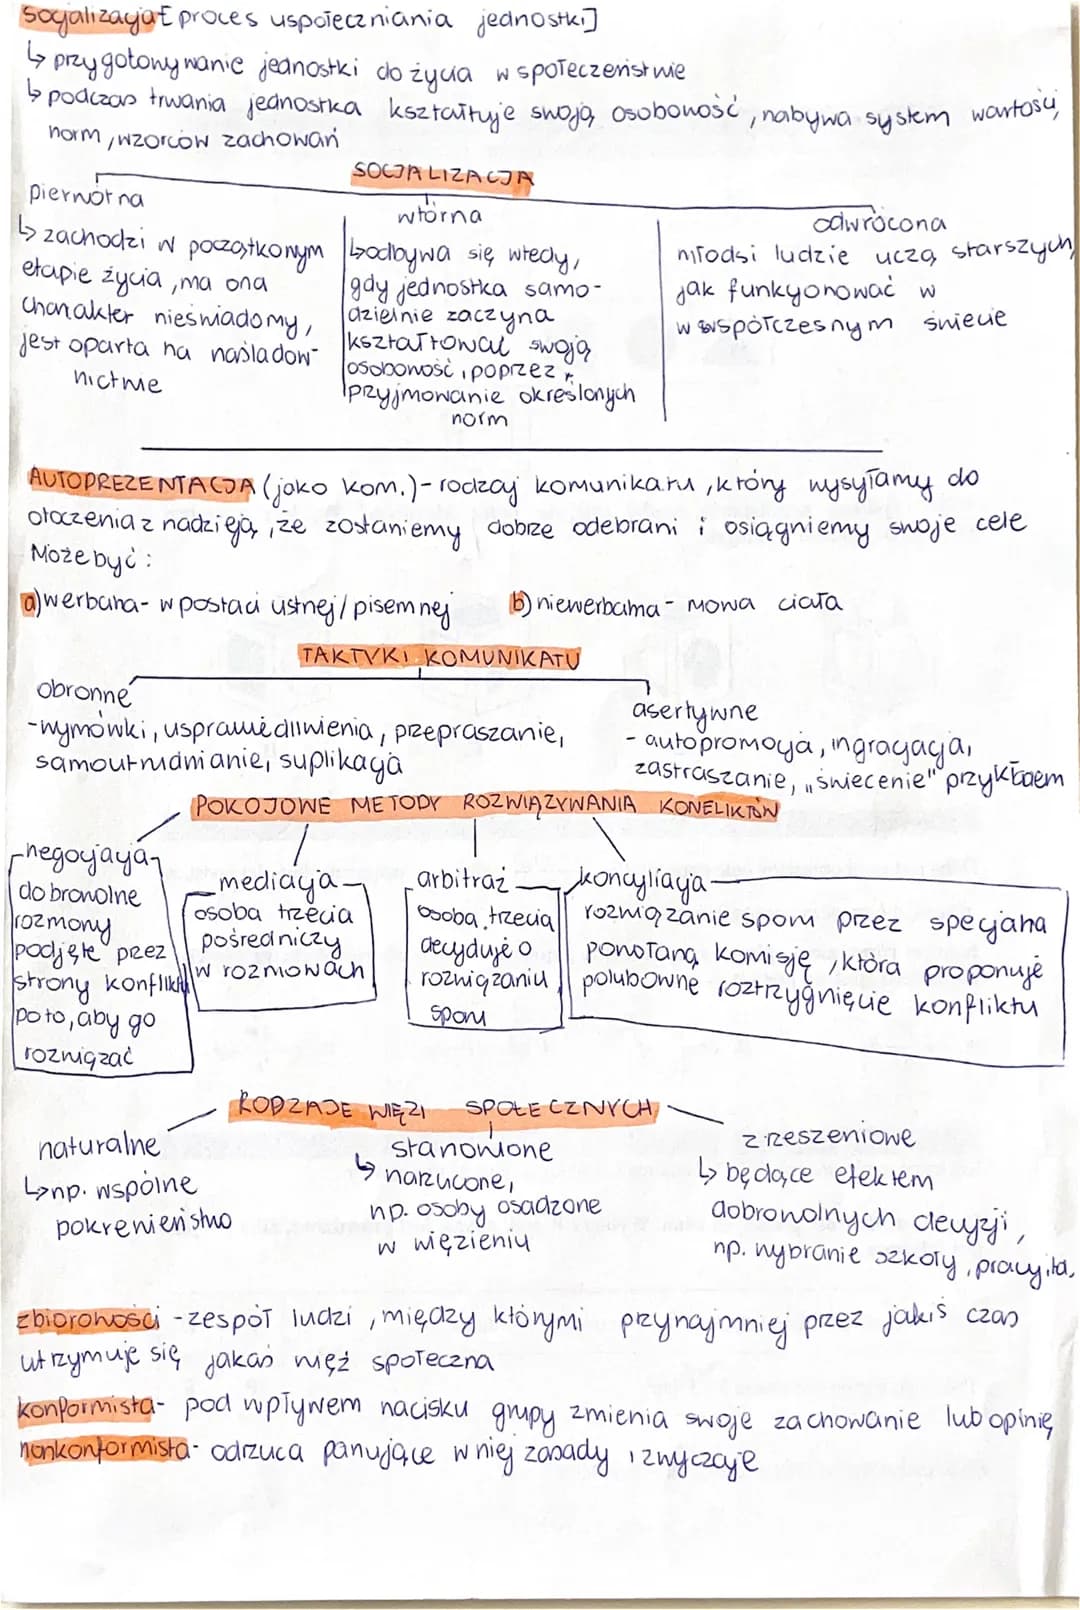 socjalizacja [proces uspołeczniania jednostki]
↳ przygotowywanie jednostki do życia w społeczeństwie
↳ podczas trwania jednostka kształtuje swoją osobowość, nabywa system wartości,
norm, wzorców zachowań
SOCJALIZACJA
pierwotna
↳ zachodzi w początkowym
etapie życia, ma ona
charakter nieświadomy,
jest oparta na naśladow-
nictwie
wtórna
↳ odbywa się wtedy,
gdy jednostka samo-
dzielnie zaczyna
kształtować swoją
osobowość, poprzez
przyjmowanie określonych
norm
odwrócona
młodsi ludzie uczą starszych,
jak funkcjonować w
współczesnym świecie
AUTOPREZENTACJA (jako kom.) - rodzaj komunikatu, który wysyłamy do
otoczenia z nadzieją, że zostaniemy dobrze odebrani i osiągniemy swoje cele
Może być:
a) werbalna - w postaci ustnej/pisemnej b) niewerbalna - mowa ciała
TAKTYKI KOMUNIKATU
obronne
- wymówki, usprawiedliwienia, przepraszanie,
samoutrudnianie, suplikacja
asertywne
- autopromocja, ingracjacja,
zastraszanie, „świecenie" przykładem
POKOJOWE METODY ROZWIĄZYWANIA KONFLIKTÓW
negocjacja
dobrowolne
rozmowy
podjęte przez
strony konfliktu
po to, aby go
rozwiązać
mediacja
osoba trzecia
pośredniczy
w rozmowach
arbitraż
osoba trzecia
decyduje o
rozwiązaniu
sporu
koncyliacja
rozwiązanie sporu przez specjalną
powołaną komisję, która proponuje
polubowne roztrzygnięcie konfliktu
RODZAJE WIĘZI SPOŁECZNYCH
naturalne
↳ np. wspólne
pokrewieństwo
stanowione
↳ narzucone,
np. osoby osadzone
w więzieniu
zrzeszeniowe
↳ będące efektem
dobrowolnych decyzji,
np. wybranie szkoły, pracy itd.
zbiorowości - zespół ludzi, między którymi przynajmniej przez jakiś czas
utrzymuje się jakaś więź społeczna
konformista - pod wpływem nacisku grupy zmienia swoje zachowanie lub opinię
nonkonformista - odrzuca panujące w niej zasady i zwyczaje